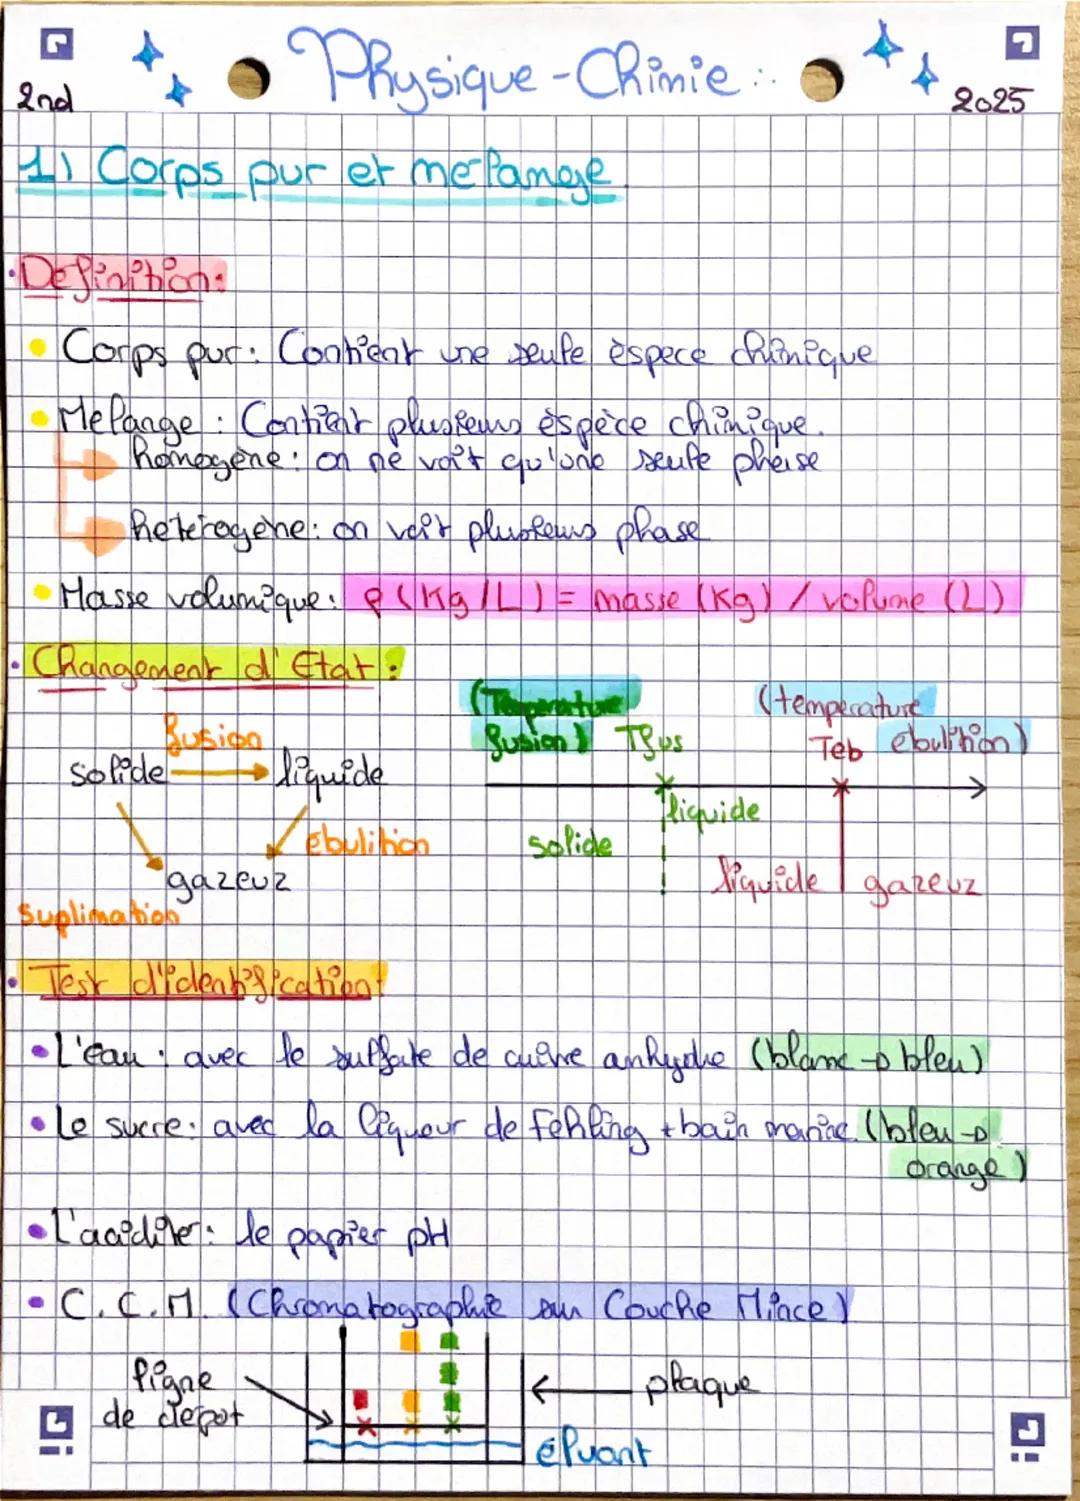 Physique-Chimie :.
2nd
2025
1) Corps pur et melange
• Definition:
• Corps pur: Contient une seule èspece chimique
• Melange : Contient plusieurs èspèce chimique.
homogène: on ne voit qu'une seule phase
heterogene: on voit plusieurs phase
• Masse volumique: ρ (Kg/L) = masse (Kg) / volume (L)
• Changement d'Etat :
(Temperature fusion) Tfus
(temperature ebulition)
Teb
fusion
solide liquide
ebulition
gazeux
suplimation
solide
liquide
liquide
gazeux
• Test d'identification:
• L'eau : avec le sulfate de cuivre anhydre (blanc → bleu)
• Le sucre: avec la liqueur de Fehling + bain marine (bleu →
orange)
• L'aciditer: le papier pH
• C.C.M. (Chromatographie sur Couche Mince)
ligne
de depot
plaque
éluant